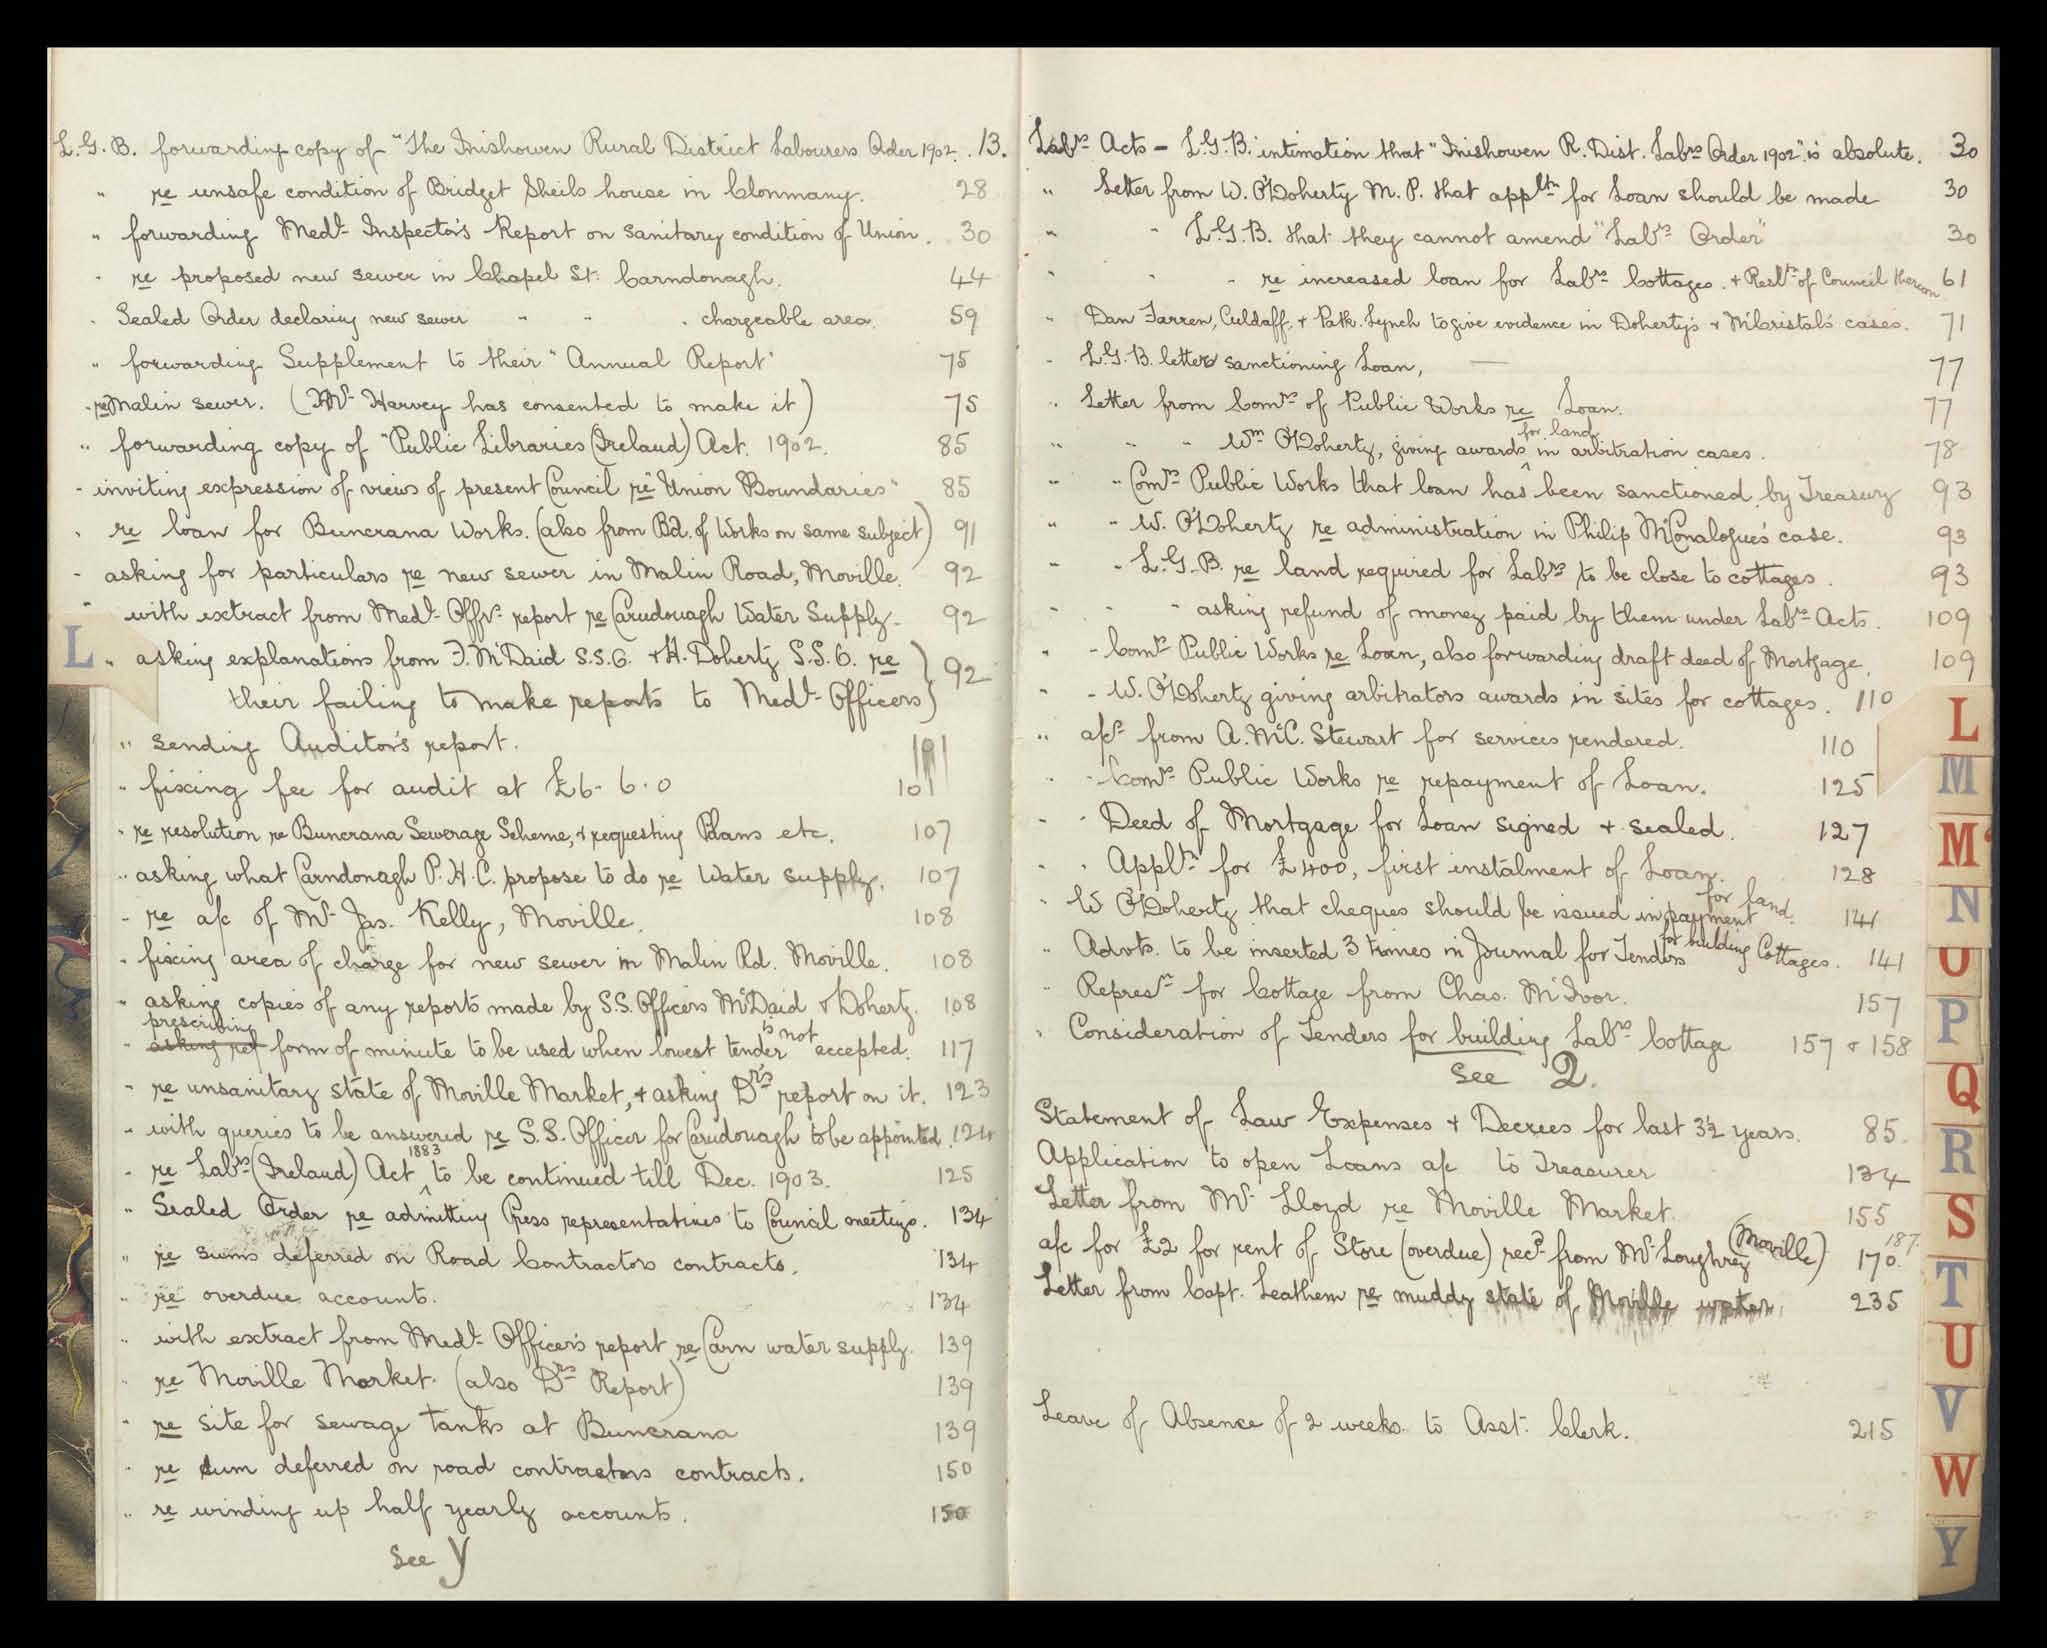 L.G.B. forwarding copy of "The Inishowen Rural District Labourers Order 1902. 13.
" re unsafe condition of Bridget Sheils house in Clonmany. 28
" forwarding Medl. Inspector's Report on sanitary condition of Union. 30
" re proposed new sewer in Chapel St. Carndonagh. 44
" Sealed Order declaring new sewer " " " chargeable area. 59
" forwarding Supplement to their "Annual Report" 75
" re Malin sewer. (Mr Harvey has consented to make it) 75
" forwarding copy of "Public Libraries (Ireland) Act. 1902. 85
" inviting expression of views of present Council re "Union Boundaries" 85
" re loan for Buncrana Works. (also from Bd. of Works on same subject) 91
" asking for particulars re new sewer in Malin Road, Moville. 92
" with extract from Medl. Offrs. report re Carndonagh Water Supply. 92
L
" asking explanations from J. McDaid S.S.O. & H. Doherty S.S.O. re
their failing to make reports to Medl. Officers} 92
" sending Auditor's report. 101
" fixing fee for audit at £6-6.0 101
" re resolution re Buncrana Sewerage Scheme, & requesting Plans etc. 107
" asking what Carndonagh P.H.C. propose to do re Water supply. 107
" re a/c of Mr Jas. Kelly, Moville. 108
" fixing area of charge for new sewer in Malin Rd. Moville. 108
" asking copies of any reports made by S.S. Officers McDaid & Doherty. 108
" prescribing form of minute to be used when lowest tender is not accepted. 117
" re unsanitary state of Moville Market, & asking Drs report on it. 123
" with queries to be answered re S.S. Officer for Carndonagh to be appointed. 124
" re Labrs (Ireland) Act 1883 to be continued till Dec. 1903. 125
" Sealed Order re admitting Press representatives to Council meetings. 134
" re sums deferred on Road Contractors contracts. 134
" re overdue accounts. 134
" with extract from Medl. Officer's report re Carn water supply. 139
" re Moville Market. (also Drs Report) 139
" re site for sewage tanks at Buncrana 139
" re sum deferred on road contractors contracts. 150
" re winding up half yearly accounts. 150
See Y
Labrs Acts - L.G.B. intimation that "Inishowen R. Dist. Labrs Order 1902" is absolute. 30
" Letter from W. O'Doherty M.P. that appltn for Loan should be made 30
" " L.G.B. that they cannot amend "Labrs Order" 30
" " " re increased loan for Labrs Cottages. & Resltn of Council thereon 61
" Dan Farren, Culdaff, & Patk. Lynch to give evidence in Doherty's & McCristal's cases. 71
" L.G.B. letters sanctioning Loan, 77
" Letter from Comrs of Public Works re Loan. 77
" " " Wm O'Doherty, giving awards for land in arbitration cases. 78
" " Comrs Public Works that loan has been sanctioned by Treasury 93
" " W. O'Doherty re administration in Philip McConalogue's case. 93
" " L.G.B. re land required for Labrs to be close to cottages. 93
" " " asking refund of money paid by them under Labrs Acts. 109
" " Comrs Public Works re Loan, also forwarding draft deed of Mortgage. 109
" " W. O'Doherty giving arbitrators awards in sites for cottages. 110
" a/cs from A. McC. Stewart for services rendered. 110
" " Comrs Public Works re repayment of Loan. 125
" " Deed of Mortgage for Loan signed & sealed. 127
" " Appltn for £400, first instalment of Loan. 128
" W O'Doherty that cheques should be issued in payment for land. 141
" Advts. to be inserted 3 times in Journal for Tenders for building Cottages. 141
" Represn for Cottage from Chas. McIvor. 157
" Consideration of Tenders for building Labrs Cottage 157 & 158
See 2.
Statement of Law Expenses & Decrees for last 3½ years. 85.
Application to open Loans a/c to Treasurer 134
Letter from Mr Lloyd re Moville Market. 155
a/c for £2 for rent of Store (overdue) recd from Mr Loughrey (Moville) 170. 187.
Letter from Capt. Leathem re muddy state of Moville water. 235
Leave of Absence of 2 weeks to Asst. Clerk. 215
L
M
Mc
N
O
P
Q
R
S
T
U
V
W
Y